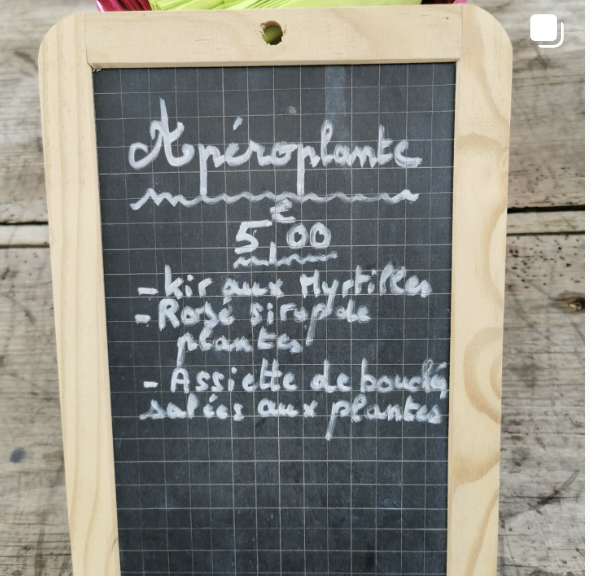 Apéroplante
5€00
- kir aux Myrtilles
- Rosé sirop de
plantes
- Assiette de
salées aux plantes